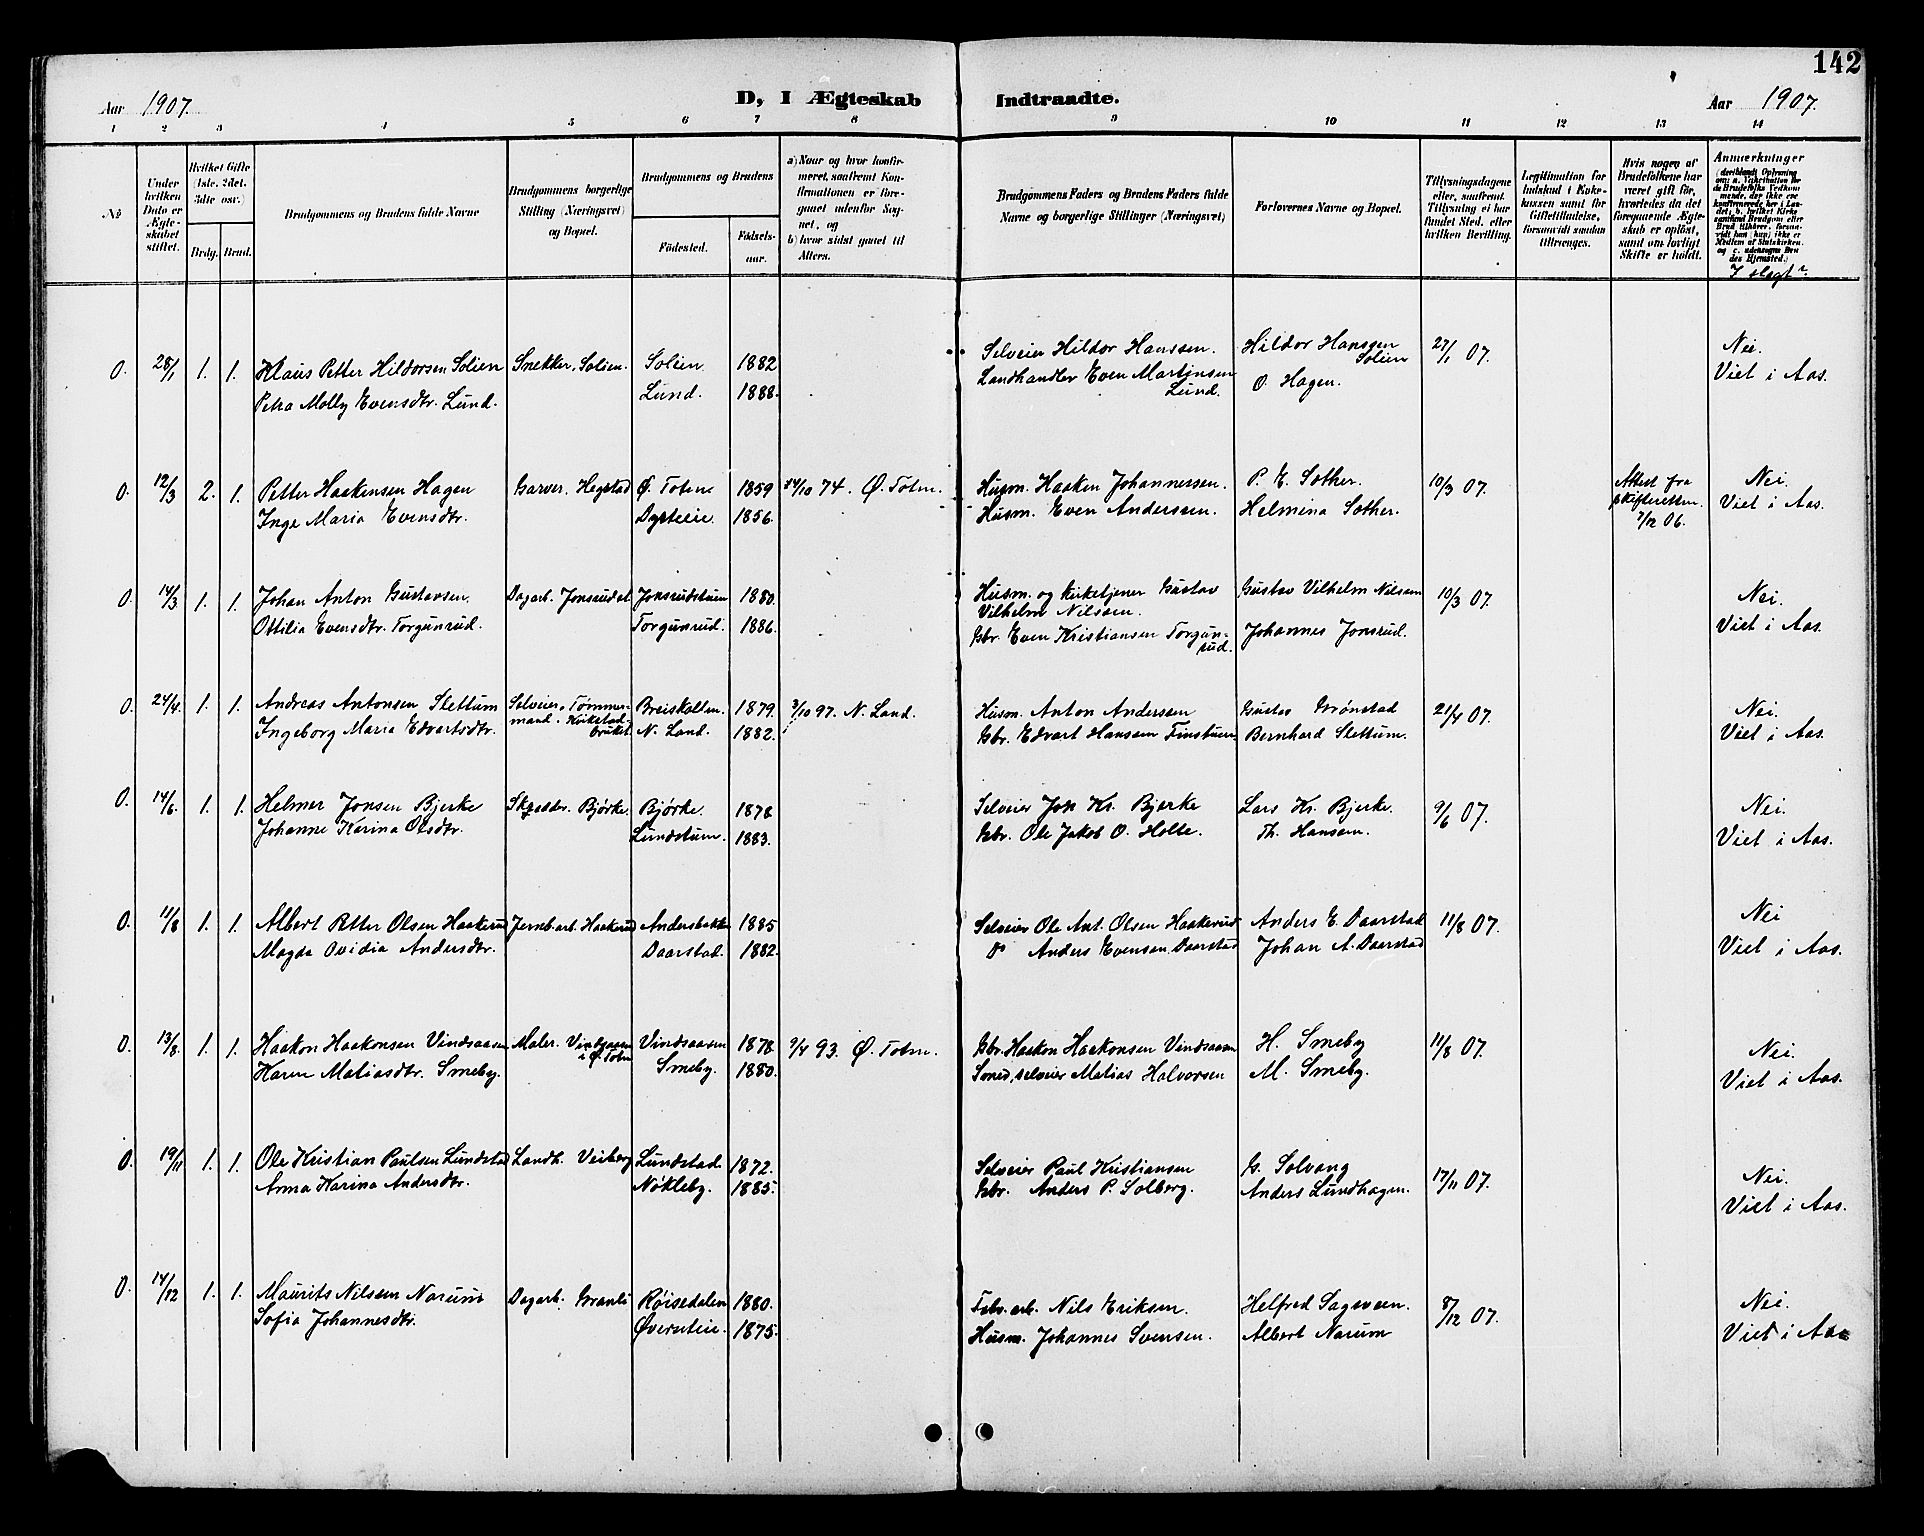 142
Aar 1907. D, I Ægteskab Indtraadte. Aar 1907.
1 2 3 4 5 6 7 8 9 10 11 12 13 14
No
Under hvilken Dato er Ægteskabet stiftet.
Hvilket Gifte (1ste, 2det, 3die osv.)
Brdg. Brud.
Brudgommens og Brudens fulde Navne
Brudgommens borgerlige Stilling (Næringsvei) og Bopæl.
Brudgommens og Brudens
Fødested. Fødselsaar.
a) Naar og hvor konfirmeret, saafremt Konfirmationen er foregaaet udenfor Sognet, og
b) hvor sidst gaaet til Alters.
Brudgommens Faders og Brudens Faders fulde Navne og borgerlige Stillinger (Næringsvei)
Forlovernes Navne og Bopæl.
Tillysningsdagene eller, saafremt Tillysning ei har fundet Sted, efter hvilken Bevilling.
Legitimation for Indskud i Enkekassen samt for Giftetilladelse, forsaavidt saadan tiltrænges.
Hvis nogen af Brudefolkene har været gift før, hvorledes da det foregaaende Ægteskab er opløst, samt om lovligt Skifte er holdt.
Anmærkninger
I slegt?
0. 28/1 1. 1. Klaus Petter Hildorsen Solien Snekker, Solien. Solien 1882 Selveier Hildor Hanssen. Hildor Hansen Solien 27/1 07. Nei.
Petra Molly Evensdtr. Lund. Lund. 1888. Landhandler Even Martinsen Lund. O. Hagen. Viet i Aas.
0. 12/3 2. 1. Petter Haakensen Hagen Garver. Hegstad Ø. Toten 1859 14/10 74. Ø. Toten. Husm. Haaken Johannessen. P. E. Sother. 10/3 07. Attest fra skifteretten 7/12 06. Nei.
Inge Maria Evensdtr. Dysteeie. 1856. Husm. Even Anderssen. Helmina Sother. Viet i Aas.
0. 14/3 1. 1. Johan Anton Gustavsen. Dagarb. Jonsrudet Jonsrudstuen 1880. Husm. og Kirketjener Gustav Vilhelm Nilssen. Gustav Vilhelm Nilssen 10/3 07. Nei.
Ottilia Evensdtr. Torgunrud. Torgunrud. 1886. Gbr. Even Kristiansen Torgunrud. Johannes Jonsrud. Viet i Aas.
0. 24/4. 1. 1. Andreas Antonsen Slettum Selveier, Tømmermand. Breiskallen. 1879. 3/10 97. N. Land. Husm. Anton Andersen Gustav Grønstad 21/4 07. Nei.
Ingeborg Maria Edvartsdtr. N. Land. 1882. Gbr. Edvart Hansen Finstuen. Bernhard Slettum. Viet i Aas.
0. 14/6 1. 1. Helmer Jonsen Bjerke Bjørke. Bjørke. 1878 Selveier Jon Kr. Bjerke Lars Kr. Bjerke. 9/6 07. Nei.
Johanne Karina Olsdtr. Lundstuen. 1883. Gbr. Ole Jakob O. Holte. Th. Hansen. Viet i Aas.
0. 11/8 1. 1. Albert Petter Olsen Haakerud Jernb.arb. Haakerud Andersbakke 1885 Selveier Ole Ant. Olsen Haakerud Anders E. Daarstad 11/8 07. Nei
Magda Ovidia Andersdtr. Daarstad. 1882. Do Anders Evensen Daarstad Johan A. Daarstad Viet i Aas.
0. 13/8. 1. 1. Haakon Haakonsen Vindsaasen Maler. i Ø. Toten Vindsaasen 1878 9/4 93. Ø. Toten. Gbr. Haakon Haakonsen Vindsaasen H. Smeby 11/8 07. Nei.
Karen Matiasdtr. Smeby. Smeby. 1880. Smed, selveier Matias Halvorsen M. Smeby. Viet i Aas.
0. 19/11 1. 1. Ole Kristian Paulsen Lundstad Landh. Veiberg Lundstad. 1872. Selveier Paul Kristiansen G. Solvang 17/11 07. Nei.
Anna Karina Andersdtr. Nøkleby. 1885. Gbr. Anders P. Solberg. Anders Lundhagen. Viet i Aas.
0. 14/12 1. 1. Maurits Nilssen Narum Dagarb. Granli Røisedalen 1880. Fabr.arb. Nils Eriksen. Helfred Sagveen. 8/12 07. Nei.
Sofia Johannesdtr. Øverneeie. 1875. Husm. Johannes Svensen. Albert Narum Viet i Aas